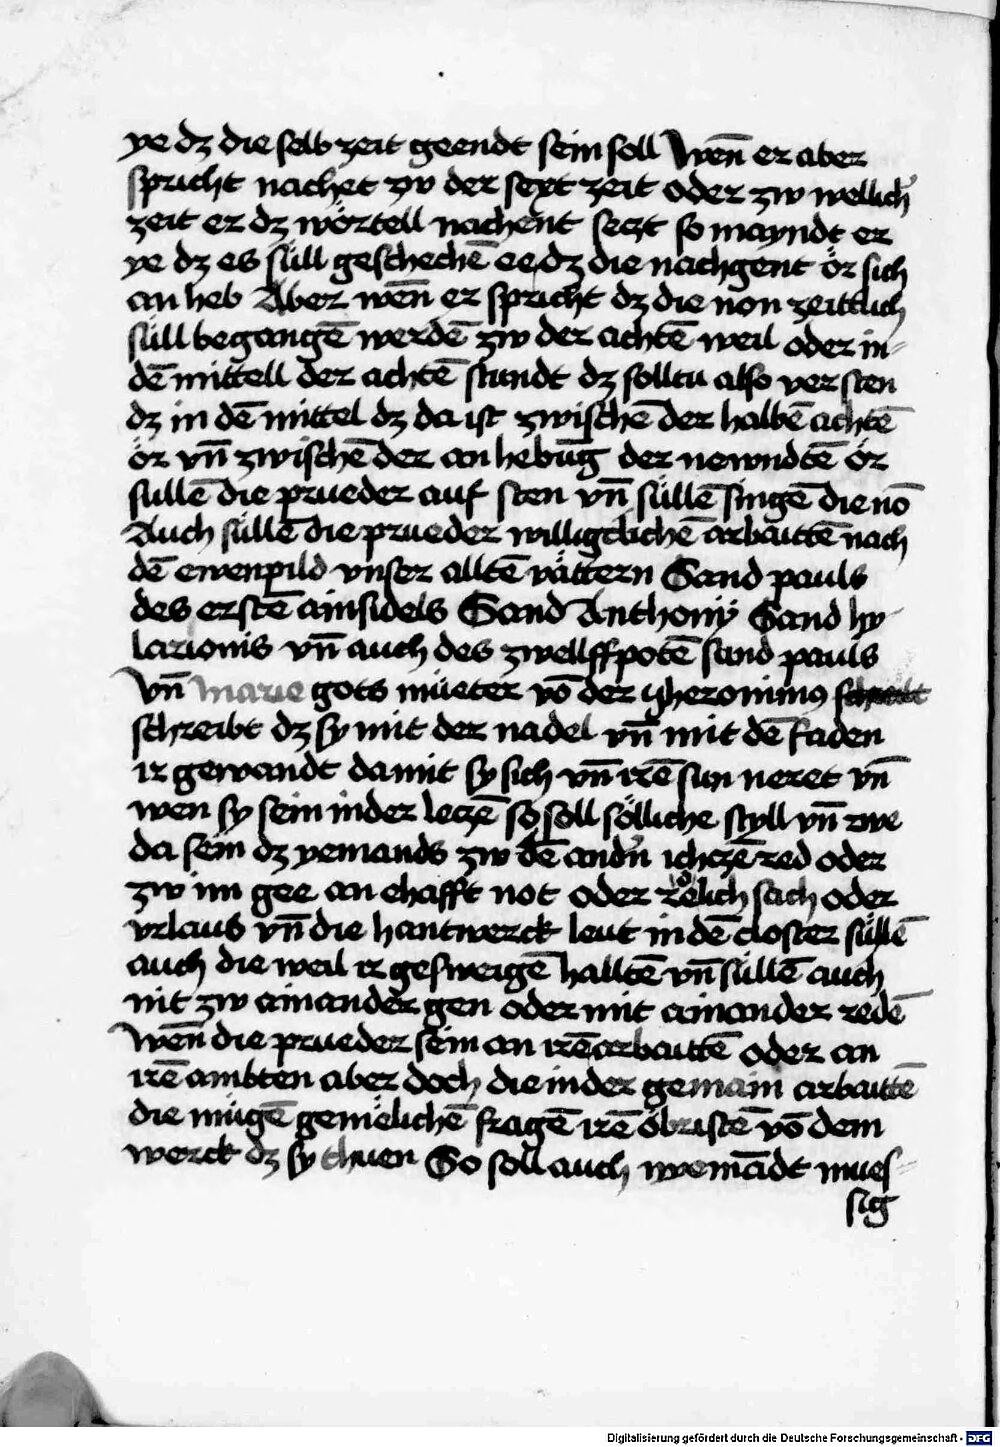 ye dz die selb zeit geendt sein soll Wen̄ er aber
spricht nachet zv der sext zeit oder zw wellich᾽
zeit er dz wörtell nachent seczt so mayndt er
ye dz es süll geschechē ee dz die nachgent ör sich
an heb Aber wen̄ er spricht dz die non zeittlich
süll begangē werdē zw der achtē weil oder in=
dē mittell der achtē stundt dz solltu also versten
dz in dē mittel dz da ist zwischē der halbē achtē
ör vn̄ zwischē der an hebūg der newndtē ör
sullē die prueder auf sten vn̄ süllē singē die nō
Auch süllē die prueder willigclichē arbauttē nach
dē ewenpild vnser alltē vättern Sand pauls
des erstē ainsidels Sand Anthonij Sand hy-
larionis vn̄ auch des zwellffpotē sand pauls
Vn̄ marie gots müeter vō der yheronimus
schreibt dz sy mit der nadel vn̄ mit dē faden
ir gewandt da mit sy sich vn̄ irē sun neret vn̄
wen sy sein in der leczē so soll sölliche styll vn̄ rwe
da sein dz yemands zw dē andn̄ ichczē red oder
zw im gee an ehafft not oder redlich sach oder
vrlaub vn̄ die hantwerck leut in dē closter süllē
auch die weil ir gesweigē halltē vn̄ süllē auch
nit zw ainander gen oder mit ainander redē
Wen̄ die prueder sein an irē arbauttē oder an
irē ambten aber doch die in der gemain arbauttē
die mügē gemelichē fragē irē öbristē vō dem
werck dz sy thuen So soll auch nyemādt mues=
sig
Digitalisierung gefördert durch die Deutsche Forschungsgemeinschaft - DFG